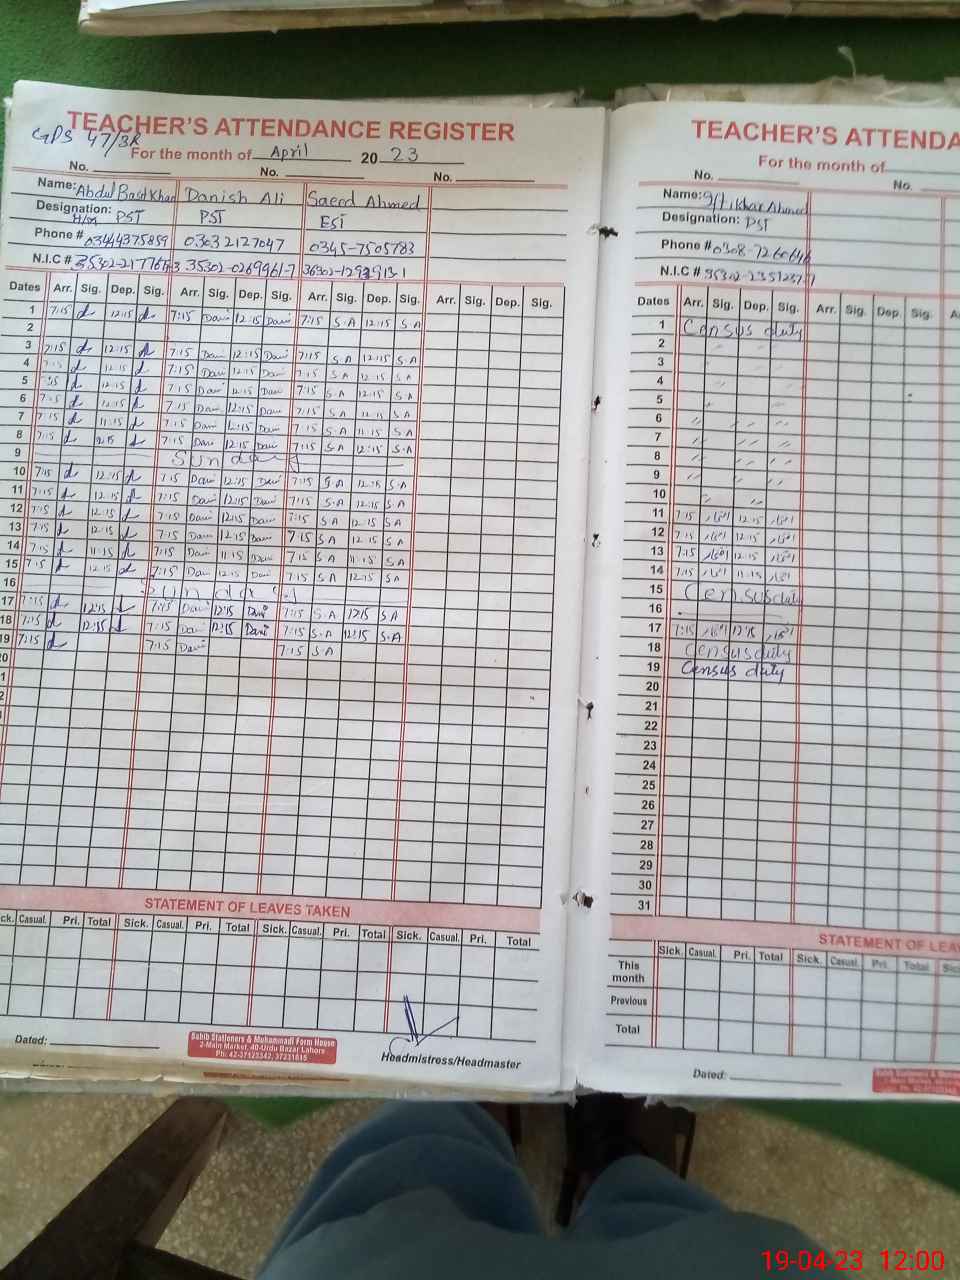 TEACHER'S ATTENDANCE REGISTER
GPS 47/3R
For the month of April 2023
No. No. No.
Name: Abdul Basit Khan Danish Ali Saeed Ahmed
Designation: PST PST EST
Phone # 03444375859 0303 2127047 0345-7505783
N.I.C # 35302-0269961-7
Dates Arr. Sig. Dep. Sig. Arr. Sig. Dep. Sig. Arr. Sig. Dep. Sig. Arr. Sig. Dep. Sig.
1 7:15 12:15 7:15 Dani 12:15 Dani 7:15 S.A 12:15 S.A
2
3 7:15 12:15 7:15 Dani 12:15 Dani 7:15 S.A 12:15 S.A
4 7:15 12:15 7:15 Dani 12:15 Dani 7:15 S.A 12:15 S.A
5 7:15 12:15 7:15 Dani 12:15 Dani 7:15 S.A 12:15 S.A
6 7:15 12:15 7:15 Dani 12:15 Dani 7:15 S.A 12:15 S.A
7 7:15 11:15 7:15 Dani Dani 7:15 S.A 11:15 S.A
8 7:15 7:15 Dani 12:15 Dani 7:15 S.A 12:15 S.A
9 Sunday
10 7:15 12:15 7:15 Dani 12:15 Dani 7:15 S.A 12:15 S.A
11 7:15 12:15 7:15 Dani 12:15 Dani 7:15 S.A 12:15 S.A
12 7:15 12:15 7:15 Dani 12:15 Dani 7:15 S.A 12:15 S.A
13 7:15 12:15 7:15 Dani 12:15 Dani 7:15 S.A 12:15 S.A
14 7:15 11:15 7:15 Dani 11:15 Dani 7:15 S.A 11:15 S.A
15 7:15 12:15 7:15 Dani 12:15 Dani 7:15 S.A 12:15 S.A
16 Sunday
17 7:15 12:15 7:15 Dani 12:15 Dani 7:15 S.A 12:15 S.A
18 7:15 12:15 7:15 Dani 12:15 Dani 7:15 S.A 12:15 S.A
19 7:15 7:15 Dani 7:15 S.A
20
STATEMENT OF LEAVES TAKEN
Casual. Pri. Total Sick. Casual. Pri. Total Sick. Casual. Pri. Total Sick. Casual. Pri. Total
Dated:
Sahib Stationers & Muhammadi Form House
2-Main Market, 40-Urdu Bazar Lahore
Ph: 42-37123342, 37231815
Headmistress/Headmaster
TEACHER'S ATTENDA
For the month of
No. No.
Name: Iftikhar Ahmed
Designation: PST
Phone # 0308-7260646
N.I.C #
Dates Arr. Sig. Dep. Sig. Arr. Sig. Dep. Sig.
1 Census duty
2
3
4
5
6
7
8
9
10
11 7:15 افتخار 12:15 افتخار
12 7:15 افتخار 12:15 افتخار
13 7:15 افتخار 12:15 افتخار
14 7:15 افتخار 11:15 افتخار
15 Census duty
16
17 7:15 افتخار 12:15 افتخار
18 Census duty
19 Census duty
20
21
22
23
24
25
26
27
28
29
30
31
STATEMENT OF LEA
Sick. Casual. Pri. Total Sick. Casual. Pri. Total
This month
Previous
Total
Dated:
19-04-23 12:00